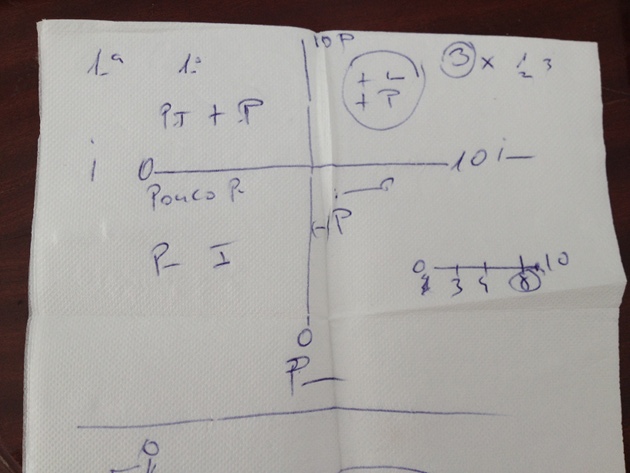 10 P
1ª 1º
3 x 1 2 3
+ L
+ P
PI + P
i 0 10 i
Pouco P
P
P I
0 10
3
8
0
P
0